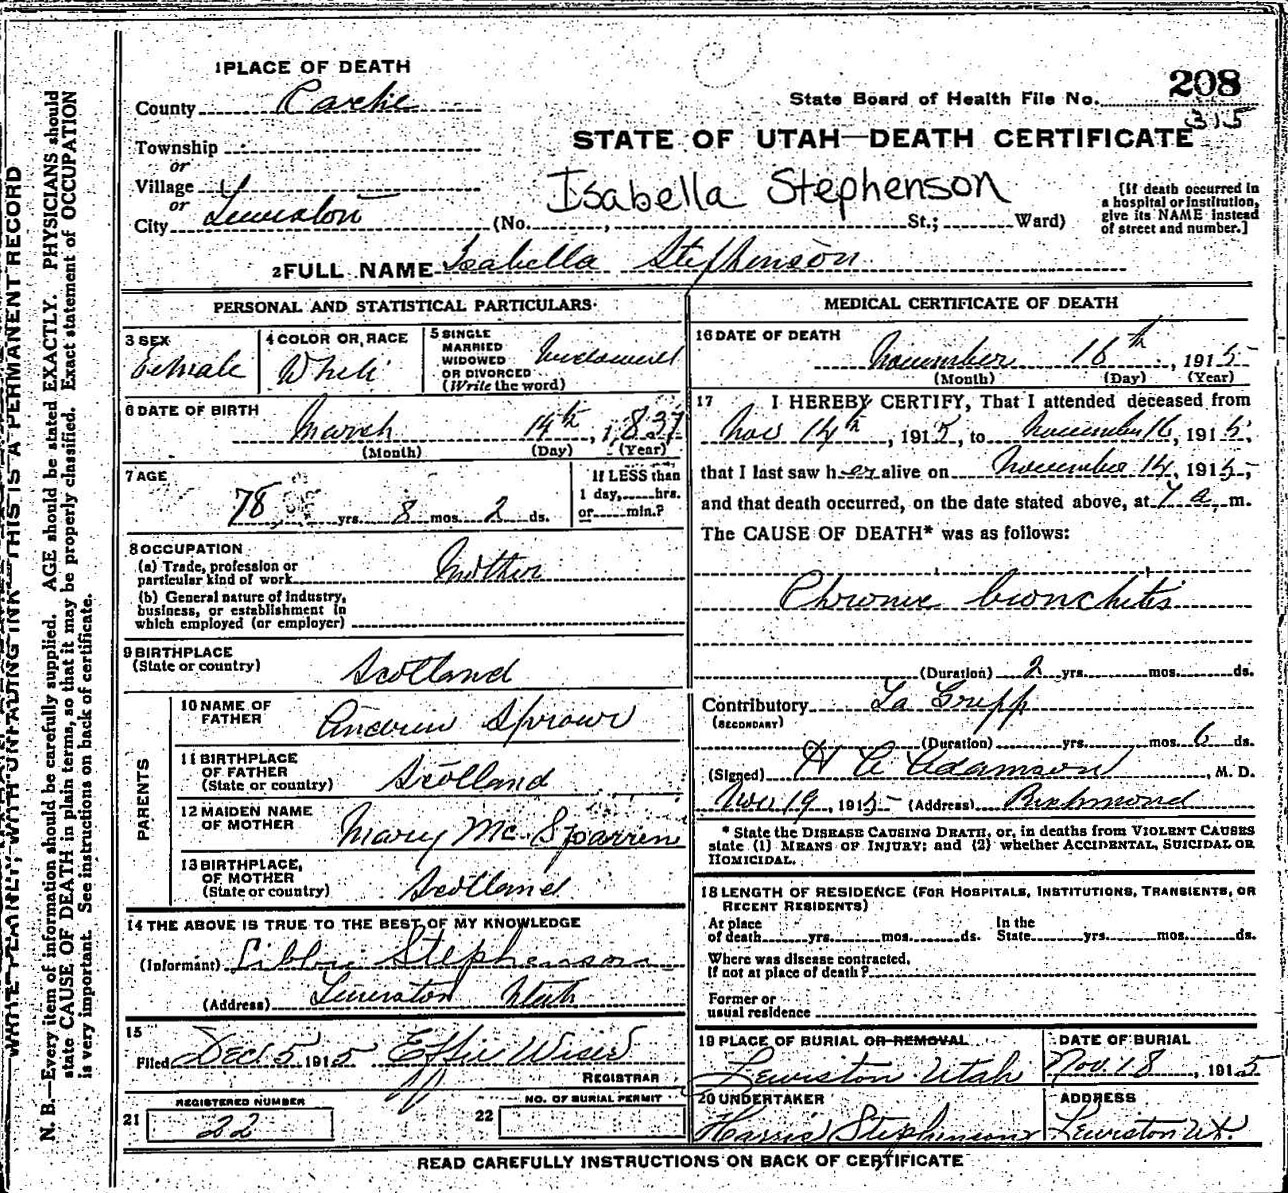 208
State Board of Health File No. 315
STATE OF UTAH—DEATH CERTIFICATE
1 PLACE OF DEATH
County Cache
Township
or
Village
or
City Lewiston
Isabella Stephenson
(No. , St.; Ward)
[If death occurred in
a hospital or institution,
give its NAME instead
of street and number.]
2 FULL NAME Isabella Stephenson
PERSONAL AND STATISTICAL PARTICULARS
3 SEX
Female
4 COLOR OR RACE
White
5 SINGLE
MARRIED
WIDOWED
OR DIVORCED
(Write the word)
Widowed
6 DATE OF BIRTH
March 14th, 1837
(Month) (Day) (Year)
7 AGE
78 yrs. 8 mos. 2 ds.
If LESS than
1 day, hrs.
or min.?
8 OCCUPATION
(a) Trade, profession or
particular kind of work Mother
(b) General nature of industry,
business, or establishment in
which employed (or employer)
9 BIRTHPLACE
(State or country) Scotland
PARENTS
10 NAME OF
FATHER Andrew Sprowr
11 BIRTHPLACE
OF FATHER
(State or country) Scotland
12 MAIDEN NAME
OF MOTHER Mary Mc. Sparren
13 BIRTHPLACE
OF MOTHER
(State or country) Scotland
14 THE ABOVE IS TRUE TO THE BEST OF MY KNOWLEDGE
(Informant) Libbie Stephenson
(Address) Lewiston Utah
15
Filed Dec 5 1915 Effie Wiser
REGISTRAR
21 REGISTERED NUMBER
22
22 NO. OF BURIAL PERMIT
MEDICAL CERTIFICATE OF DEATH
16 DATE OF DEATH
November 16th, 1915
(Month) (Day) (Year)
17 I HEREBY CERTIFY, That I attended deceased from
Nov 14th, 1915, to November 16, 1915,
that I last saw her alive on November 14, 1915,
and that death occurred, on the date stated above, at 7 a m.
The CAUSE OF DEATH* was as follows:
Chronic bronchitis
(Duration) 2 yrs. mos. ds.
Contributory La Gripp
(SECONDARY)
(Duration) yrs. mos. 6 ds.
(Signed) H C Adamson, M. D.
Nov 19, 1915 (Address) Richmond
* State the DISEASE CAUSING DEATH, or, in deaths from VIOLENT CAUSES
state (1) MEANS OF INJURY; and (2) whether ACCIDENTAL, SUICIDAL OR
HOMICIDAL.
18 LENGTH OF RESIDENCE (FOR HOSPITALS, INSTITUTIONS, TRANSIENTS, OR
RECENT RESIDENTS)
At place
of death yrs. mos. ds.
In the
State yrs. mos. ds.
Where was disease contracted,
If not at place of death?
Former or
usual residence
19 PLACE OF BURIAL OR REMOVAL
Lewiston Utah
DATE OF BURIAL
Nov. 18, 1915
20 UNDERTAKER
Harris Stephenson
ADDRESS
Lewiston Ut.
READ CAREFULLY INSTRUCTIONS ON BACK OF CERTIFICATE
WRITE PLAINLY, WITH UNFADING INK—THIS IS A PERMANENT RECORD
N. B.—Every item of information should be carefully supplied. AGE should be stated EXACTLY. PHYSICIANS should
state CAUSE OF DEATH in plain terms, so that it may be properly classified. Exact statement of OCCUPATION
is very important. See instructions on back of certificate.